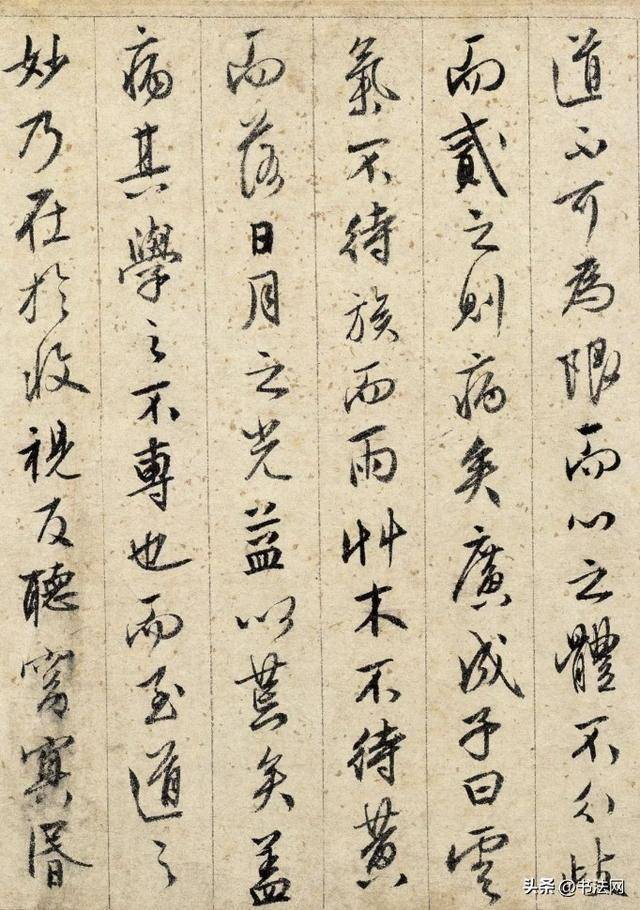 道不可為限而心之體不
而貳之則病矣廣成子曰雲
氣不待族而雨艸木不待黃
而落日月之光益以荒矣蓋
病其學之不專也而至道之
妙乃在於收視反聽窈冥昏
头条 @书法网